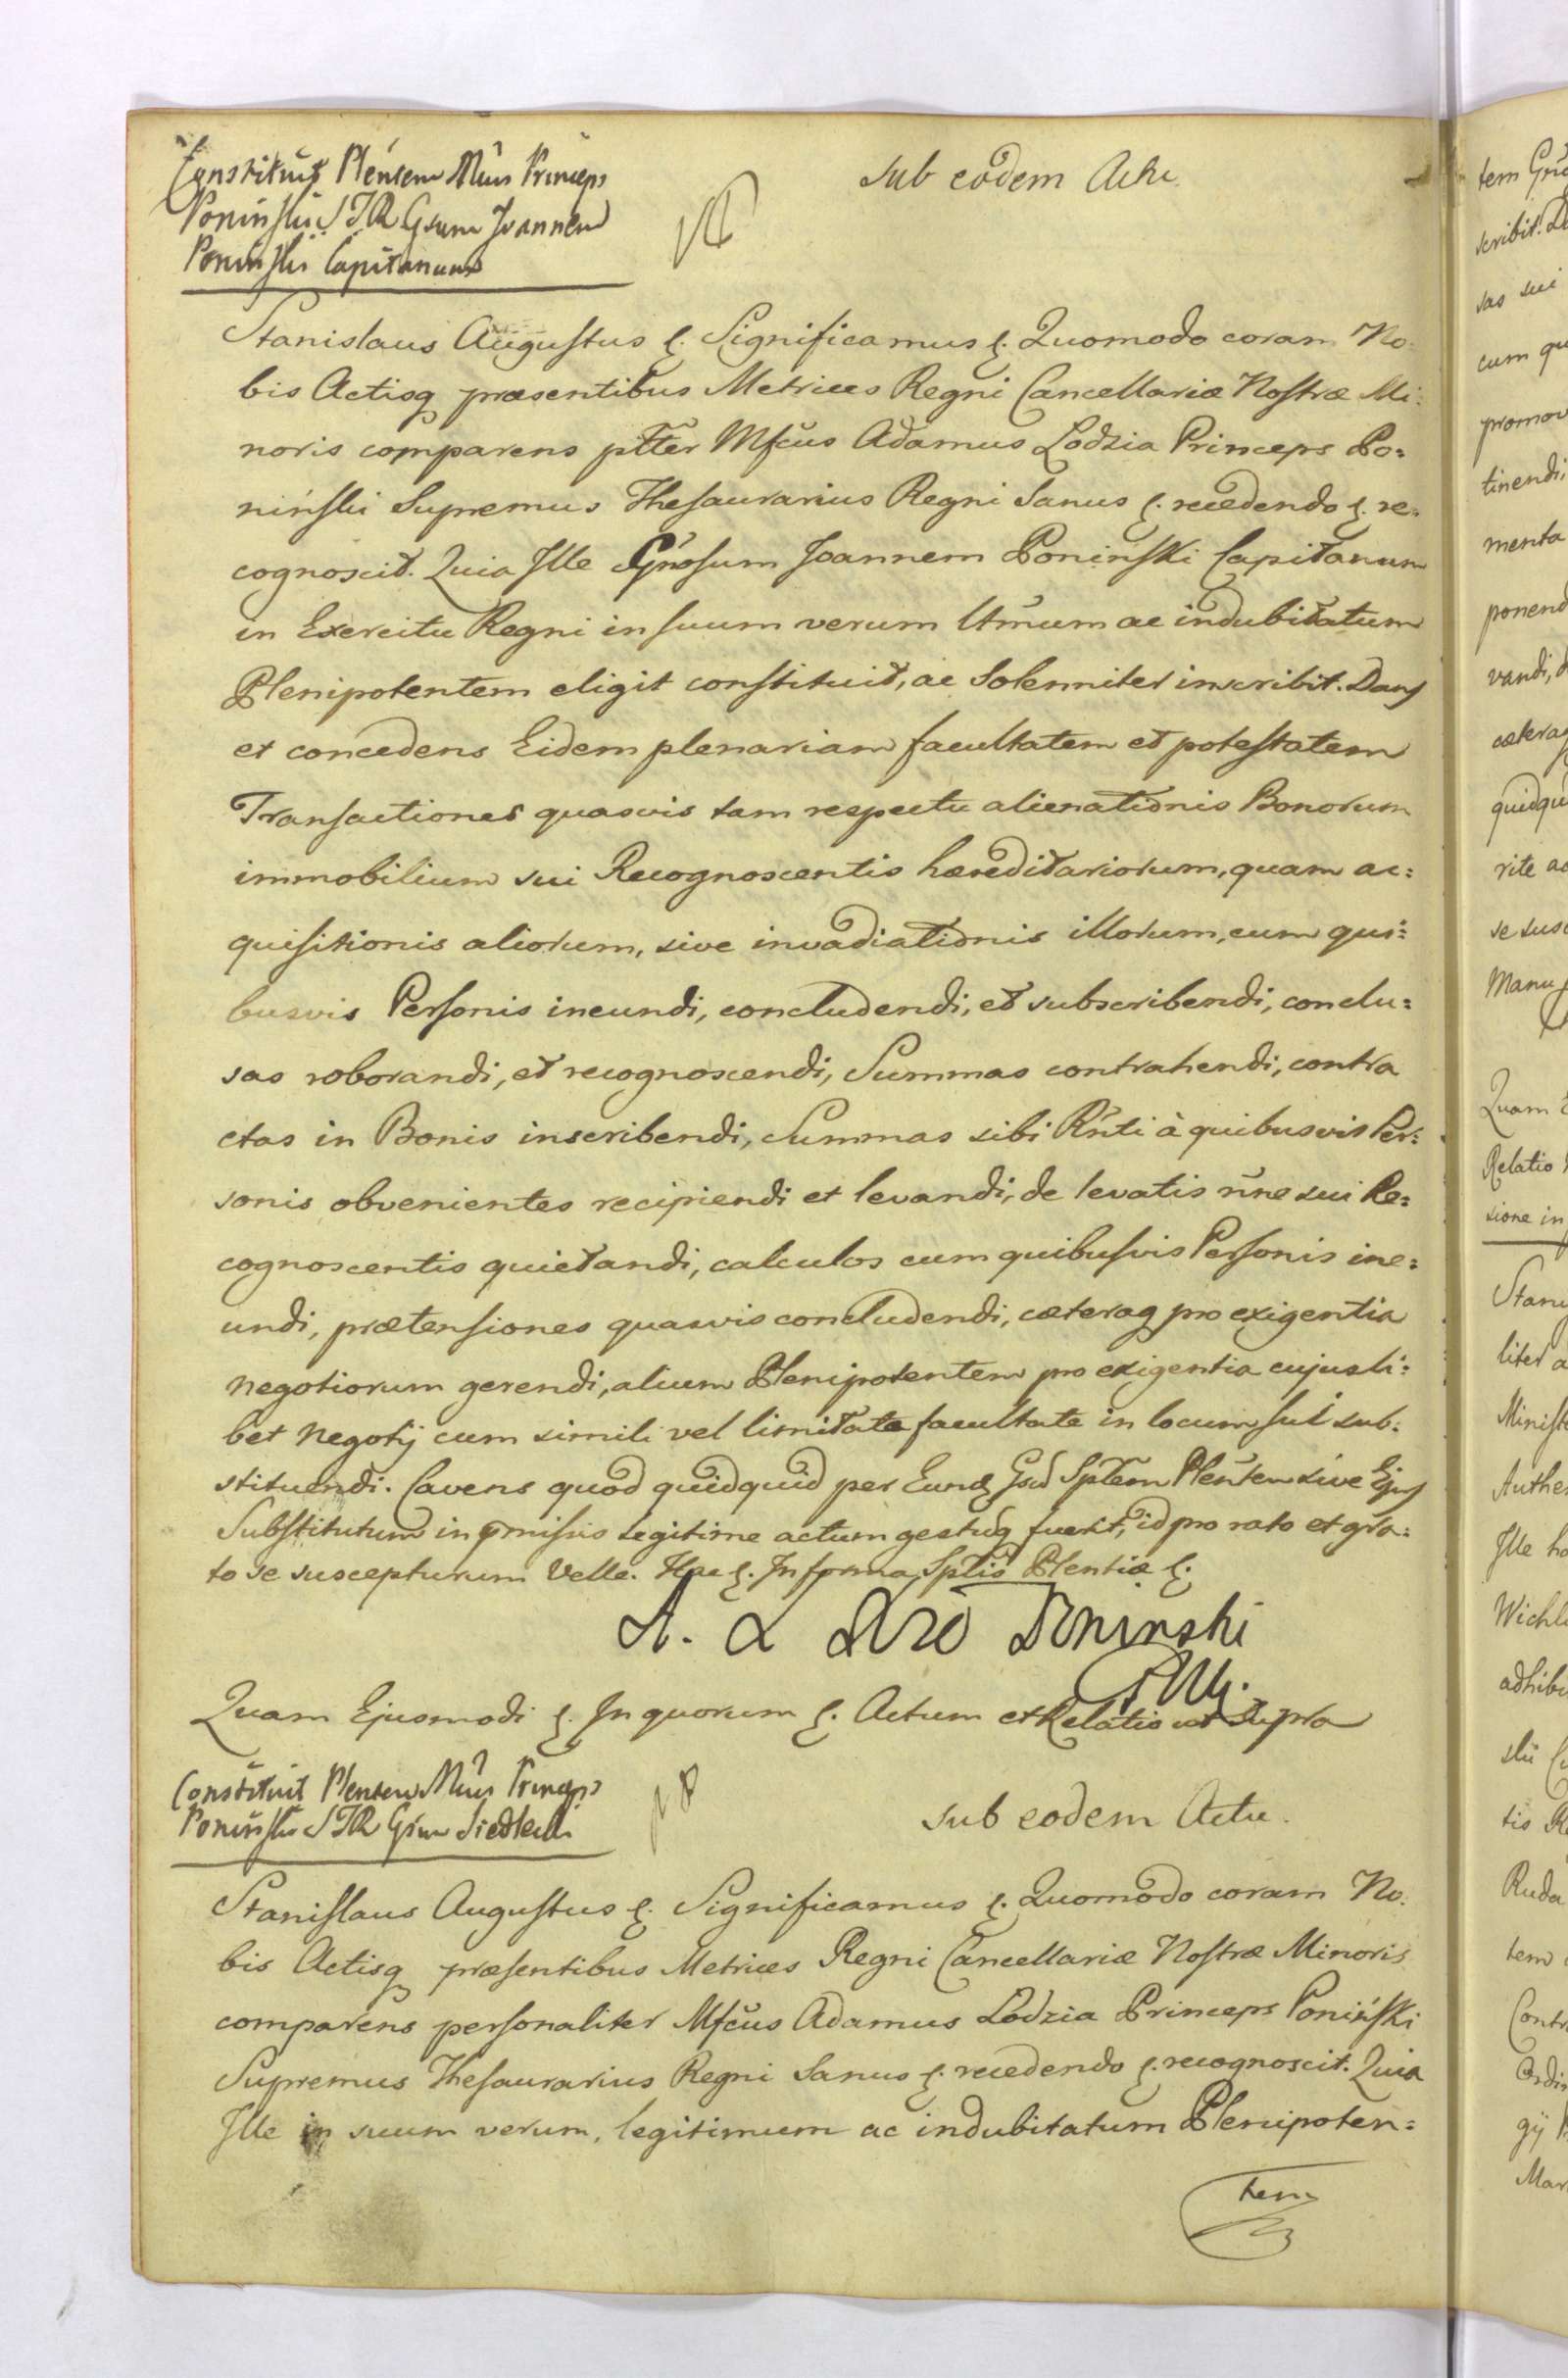 Constituit Plentem Mcus Princeps
Poninski STR Gsum Joannem
Poninski Capitaneum
Sub eodem Actu
Stanislaus Augustus &. Significamus &. Quomodo coram No:
bis Actisq præsentibus Metrices Regni Cancellariæ Nostræ Mi:
noris comparens pltter Mfcus Adamus Lodzia Princeps Po:
niński Supremus Thesaurarius Regni Sanus &. recedendo &. re:
cognoscit. Quia Ille Gnosum Joannem Poninski Capitaneum
in Exercitu Regni in suum verum ltmum ac indubitatum
Plenipotentem eligit constituit, ac Solenniter inscribit. Dans
et concedens Eidem plenariam facultatem et potestatem
Transactiones quasvis tam respectu alienationis Bonorum
immobilium sui Recognoscentis hæreditariorum, quam ac:
quisitionis aliorum, sive invadiationis illorum, cum qui:
busvis Personis ineundi, concludendi, et subscribendi, conclu:
sas roborandi, et recognoscendi, Summas contrahendi, contra
ctas in Bonis inscribendi, Summas sibi Rnti à quibusvis Per:
sonis obvenientes recipiendi et levandi, de levatis nne sui Re:
cognoscentis quietandi, calculos cum quibusvis Personis ine:
undi, prætensiones quasvis concludendi, cæteraq pro exigentia
negotiorum gerendi, alium Plenipotentem pro exigentia cujusli:
bet negotij cum simili vel limitata facultate in locum sui sub:
stituendi. Cavens quod quidquid per Eund Gsd Spłem Plentem sive Ejus
Substitutum in pmissis legitime actum gestuq fuerit, id pro rato et gra:
to se suscepturum Velle. Hac &. In forma Splis Plentiæ &.
A. Poninski
Quam Ejusmodi &. In quorum &. Actum et Relatio ut Supra
Constituit Plentem Mcus Princeps
Poninski STR Gsum Siedlecki
Sub eodem Actu.
Stanislaus Augustus &. Significamus &. Quomodo coram No:
bis Actisq præsentibus Metrices Regni Cancellariæ Nostræ Minoris
comparens personaliter Mfcus Adamus Lodzia Princeps Poniński
Supremus Thesaurarius Regni Sanus &. recedendo &. recognoscit. Quia
Ille in suum verum, legitimum ac indubitatum Plenipoten:
tem